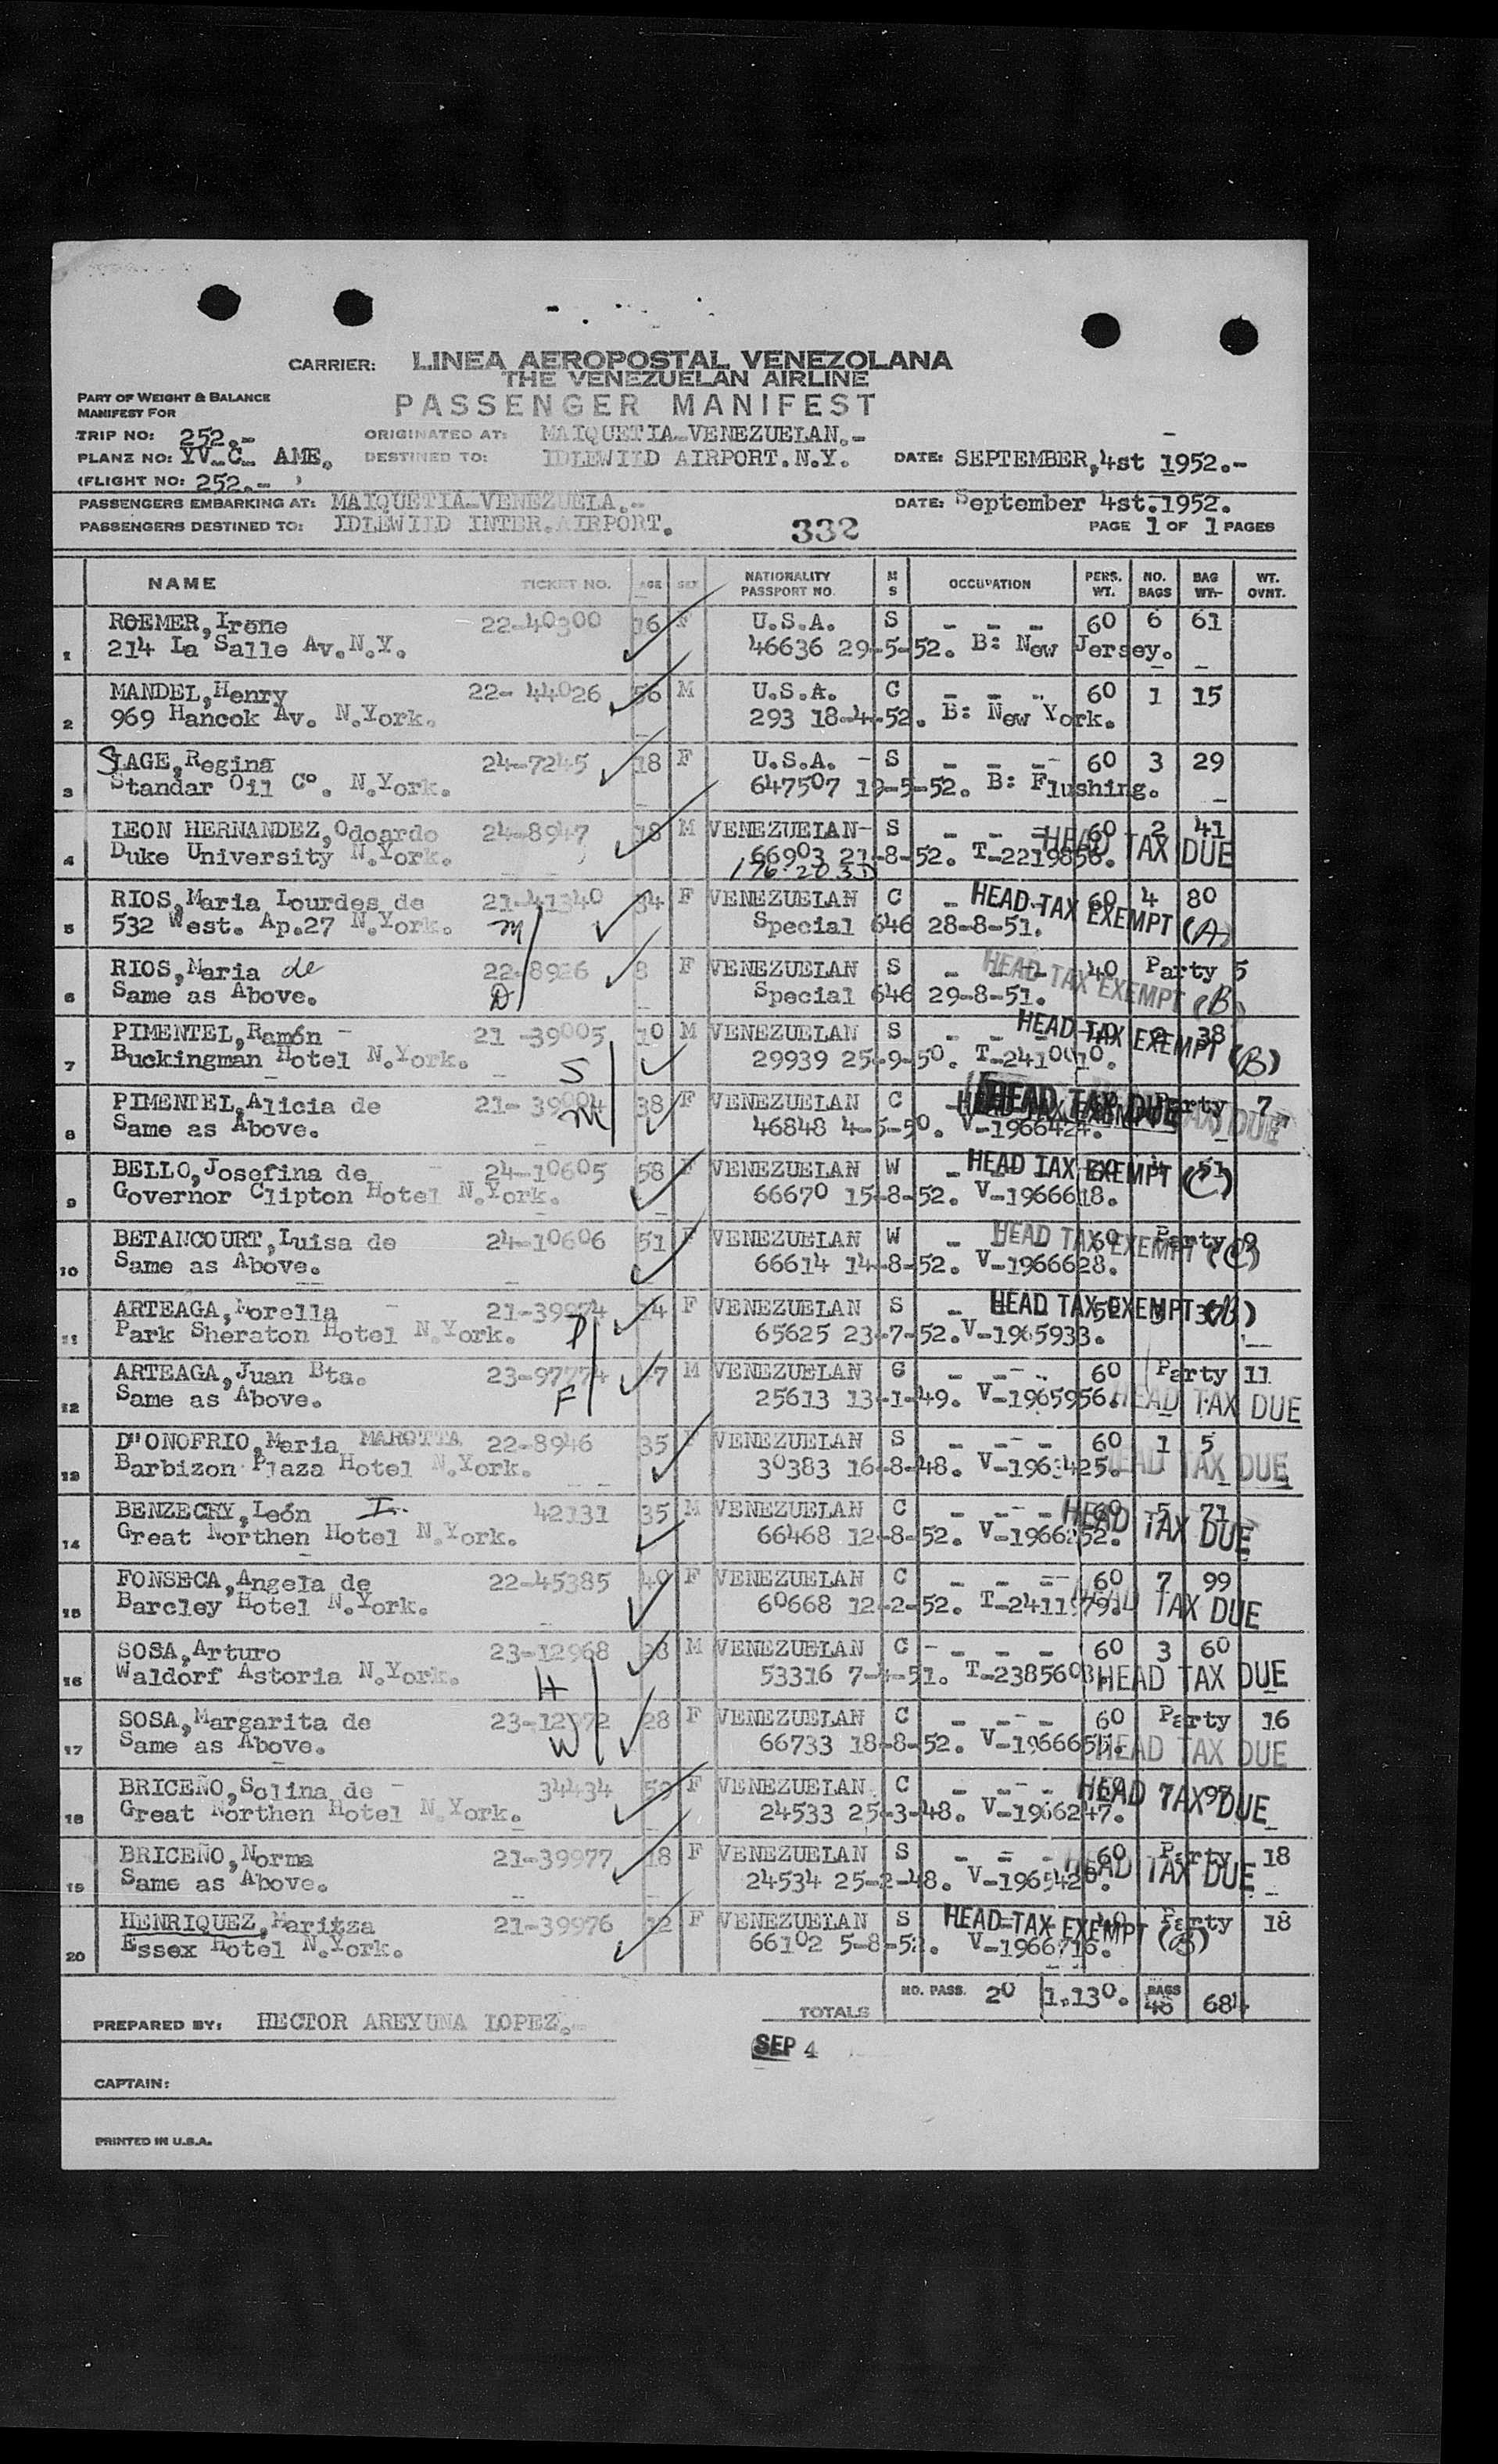 CARRIER: LINEA AEROPOSTAL VENEZOLANA
THE VENEZUELAN AIRLINE
PART OF WEIGHT & BALANCE
MANIFEST FOR
PASSENGER MANIFEST
TRIP NO: 252.- ORIGINATED AT: MAIQUETIA-VENEZUELAN.-
PLANE NO: YV-C- AME. DESTINED TO: IDLEWILD AIRPORT.N.Y. DATE: SEPTEMBER,4st 1952.-
(FLIGHT NO: 252.- )
PASSENGERS EMBARKING AT: MAIQUETIA-VENEZUELA.- DATE: September 4st.1952.
PASSENGERS DESTINED TO: IDLEWILD INTER.AIRPORT. 332 PAGE 1 OF 1 PAGES
NAME TICKET NO. AGE SEX NATIONALITY PASSPORT NO. M S OCCUPATION PERS. WT. NO. BAGS BAG WT. WT. OVNT.
ROEMER,Irene 22-40300 16 F U.S.A. S - - - 60 6 61
1 214 La Salle Av.N.Y. 46636 29-5-52. B: New Jersey.
MANDEL,Henry 22- 44026 56 M U.S.A. C - - - 60 1 15
2 969 Hancok Av. N.York. 293 18-4-52. B: New York.
SLAGE,Regina 24-7245 18 F U.S.A. - S - - - 60 3 29
3 Standar Oil Cº. N.York. 647507 19-5-52. B: Flushing.
LEON HERNANDEZ,Odoardo 24-8947 18 M VENEZUELAN- S - - - 60 2 41
4 Duke University N.York. 66903 21-8-52. T-2219856. HEAD TAX DUE
RIOS,Maria Lourdes de 21-41340 34 F VENEZUELAN C - 60 4 80
5 532 West. Ap.27 N.York. M Special 646 28-8-51. HEAD TAX EXEMPT (A)
RIOS,Maria de 22-8926 8 F VENEZUELAN S - - - 40 Party 5
6 Same as Above. D Special 646 29-8-51. HEAD TAX EXEMPT (B)
PIMENTEL,Ramón - 21 -39005 10 M VENEZUELAN S 2 38
7 Buckingman Hotel N.York. S 29939 25-9-50. T-2410010. HEAD TAX EXEMPT (B)
PIMENTEL,Alicia de 21- 39004 38 F VENEZUELAN C Party 7
8 Same as Above. M 46848 4-5-50. V-1966424. HEAD TAX DUE
BELLO,Josefina de 24-10605 58 F VENEZUELAN W - 51
9 Governor Clipton Hotel N.York. 66670 15-8-52. V-1966618. HEAD TAX EXEMPT (C)
BETANCOURT,Luisa de 24-10606 51 F VENEZUELAN W - 60 Party 9
10 Same as Above. 66614 14-8-52. V-1966628. HEAD TAX EXEMPT (C)
ARTEAGA,Morella - 21-39974 14 F VENEZUELAN S - 50 37
11 Park Sheraton Hotel N.York. D 65625 23-7-52.V-1965933. HEAD TAX EXEMPT (B)
ARTEAGA,Juan Bta. 23-97774 47 M VENEZUELAN C - - - 60 Party 11
12 Same as Above. F 25613 13-1-49. V-1965956. HEAD TAX DUE
D"ONOFRIO,Maria MAROTTA 22-8946 35 F VENEZUELAN S - - - 60 1 5
13 Barbizon Plaza Hotel N.York. 30383 16-8-48. HEAD TAX DUE
BENZECRY,León I. 42131 35 M VENEZUELAN C - - - 60 5 71
14 Great Northen Hotel N.York. 66468 12-8-52. V-1966252. HEAD TAX DUE
FONSECA,Angela de 22-45385 40 F VENEZUELAN C - - - 60 7 99
15 Barcley Hotel N.York. 60668 12-2-52. T-2411979. HEAD TAX DUE
SOSA,Arturo 23-12968 38 M VENEZUELAN C - - - - 60 3 60
16 Waldorf Astoria N.York. H 53316 7-4-51. T-2385603. HEAD TAX DUE
SOSA,Margarita de 23-12972 28 F VENEZUELAN C - - - 60 Party 16
17 Same as Above. W 66733 18-8-52. V-1966655. HEAD TAX DUE
BRICEÑO,Solina de - 34434 F VENEZUELAN C - - - 60 7 97
18 Great Northen Hotel N.York. 24533 25-3-48. V-1966247. HEAD TAX DUE
BRICEÑO,Norma 21-39977 18 F VENEZUELAN S - - - 60 Party 18
19 Same as Above. 24534 25-2-48. HEAD TAX DUE
HENRIQUEZ,Maritza 21-39976 12 F VENEZUELAN S 40 Party 18
20 Essex Hotel N.York. 66102 5-8-52. V-1966716. HEAD TAX EXEMPT (B)
TOTALS NO. PASS. 20 1.130. BAGS 48 684
PREPARED BY: HECTOR AREYUNA LOPEZ.-
SEP 4
CAPTAIN:
PRINTED IN U.S.A.